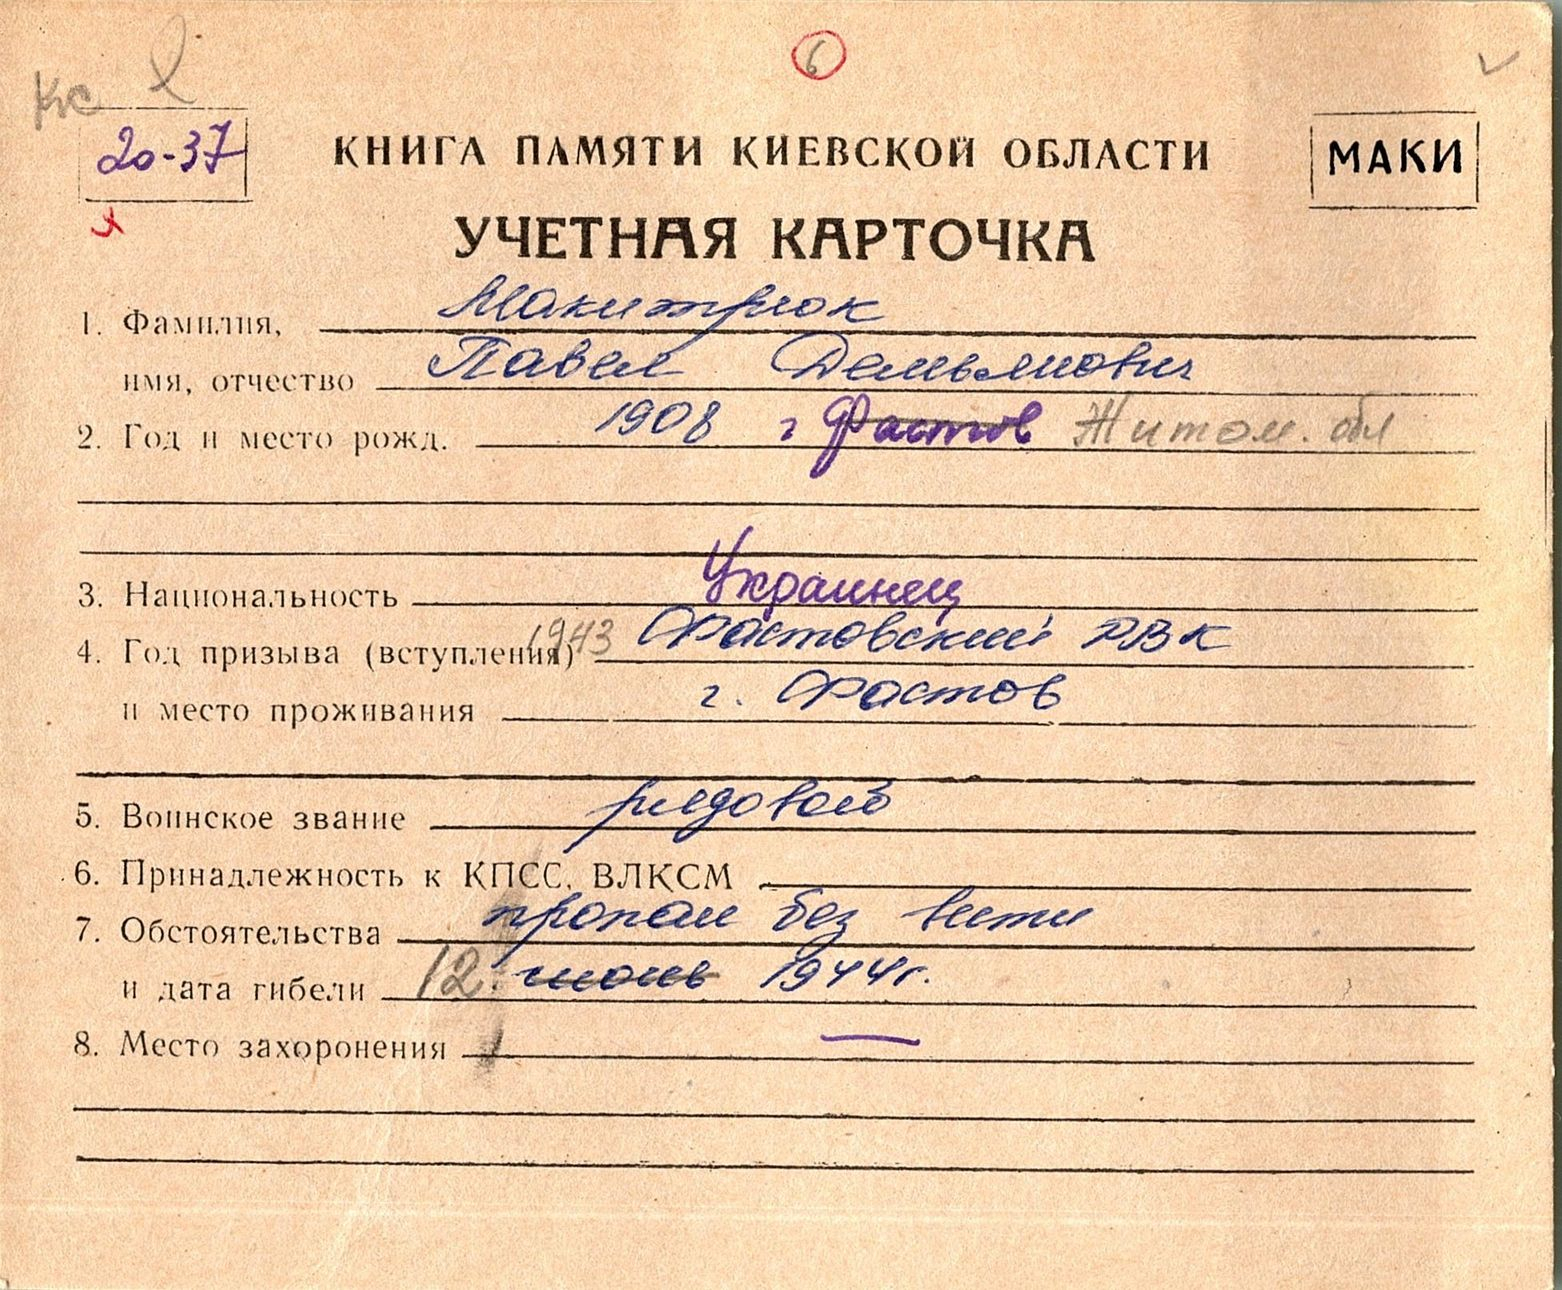 Кс
6
20-37
КНИГА ПАМЯТИ КИЕВСКОЙ ОБЛАСТИ
МАКИ
УЧЕТНАЯ КАРТОЧКА
1. Фамилия, Макитрюк
имя, отчество Павел Демьянович
2. Год и место рожд. 1908 г Фастов Житом. обл
3. Национальность Украинец
4. Год призыва (вступления) 1943 Фастовский РВК
и место проживания г. Фастов
5. Воинское звание рядовой
6. Принадлежность к КПСС, ВЛКСМ
7. Обстоятельства пропал без вести
и дата гибели 12. июнь 1944г.
8. Место захоронения —